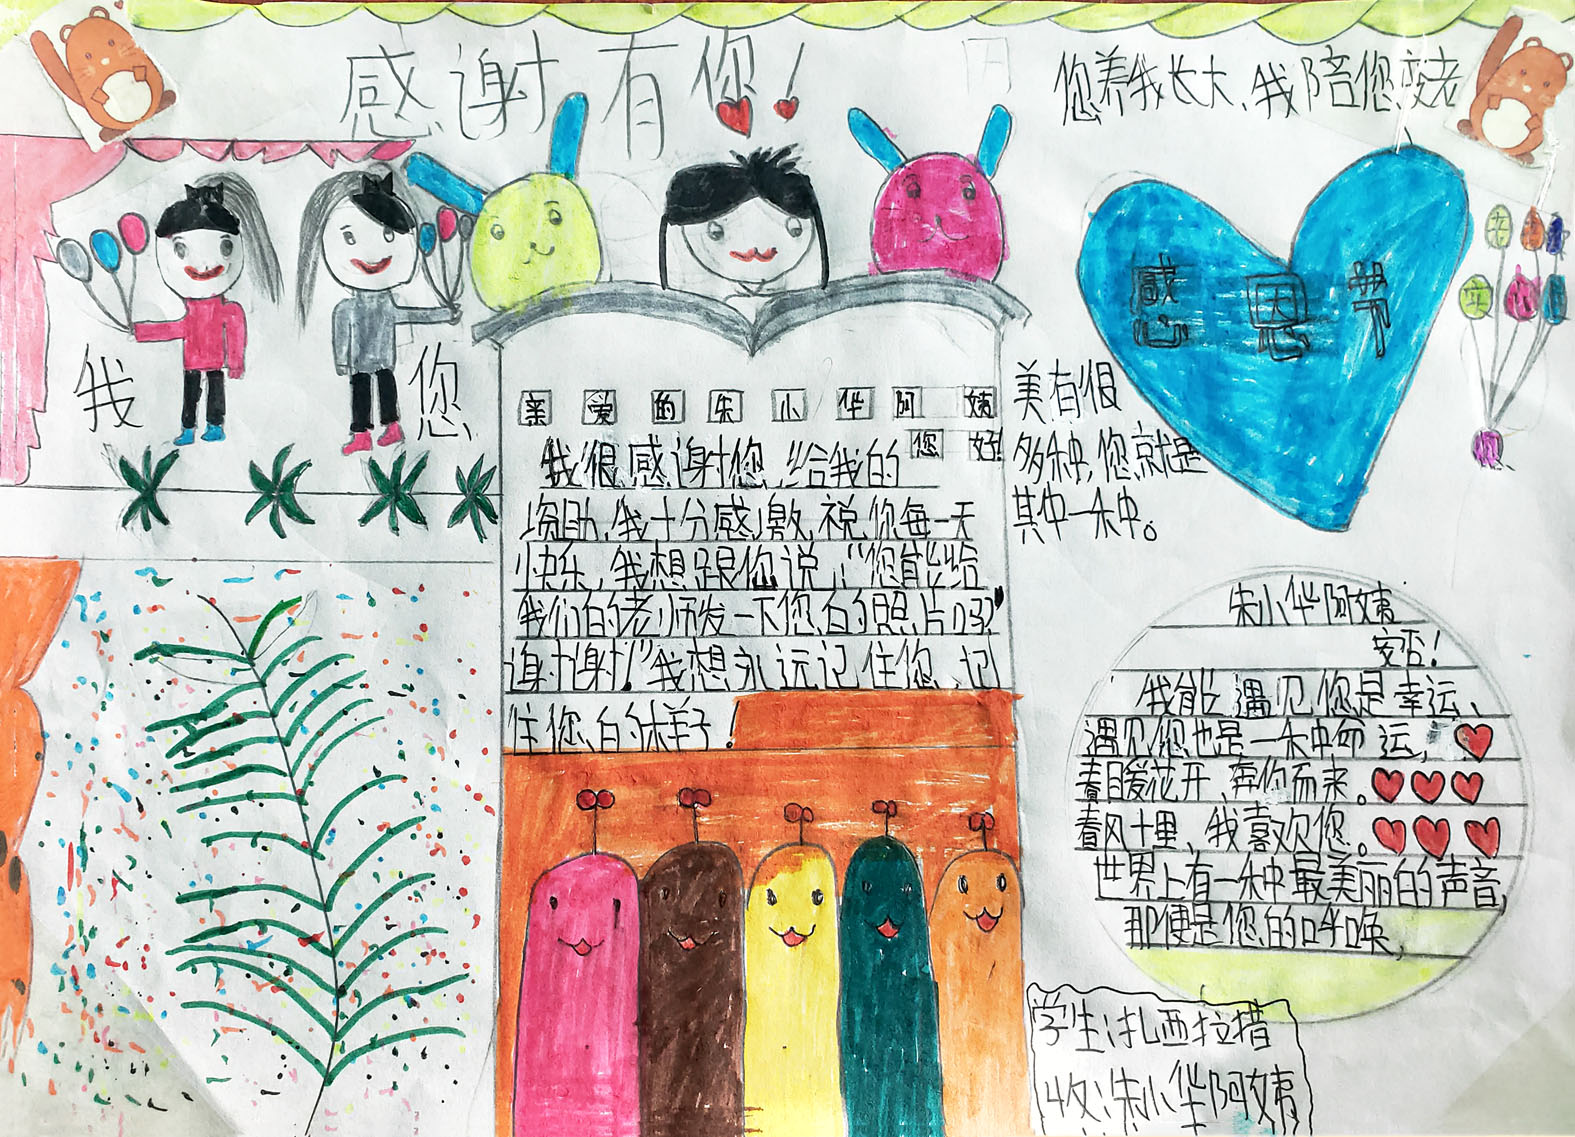 感谢有您！
您养我长大、我陪您变老
感恩节
我
您
美有很
多种，您就是
其中一种。
亲爱的朱小华阿姨
您好！
我很感谢您，给我的
资助，我十分感激，祝您每一天
快乐，我想跟您说，“您能给
我们的老师发一下您的照片吗？
谢谢！”我想永远记住您，记
住您的样子！
朱小华阿姨
安否！
我能遇见您是幸运、
遇见您也是一种命运，
春日暖花开、奔你而来。
春风十里、我喜欢您。
世界上有一种最美丽的声音，
那便是您的呼唤，
学生：扎西拉措
收：朱小华阿姨